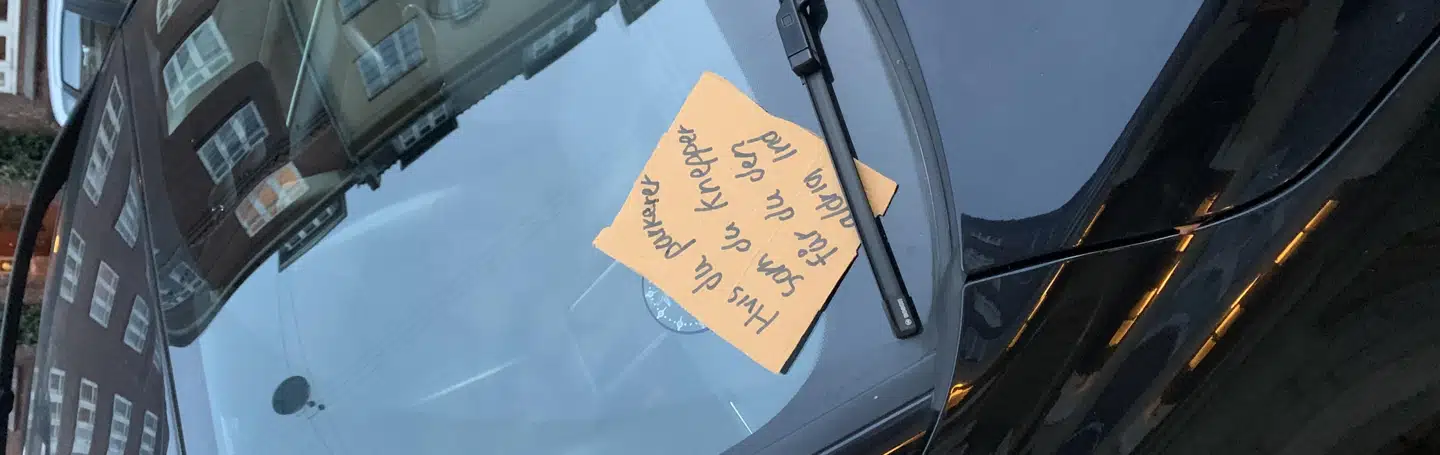 Hvis du parkerer
som du knepper
får du den
aldrig ind